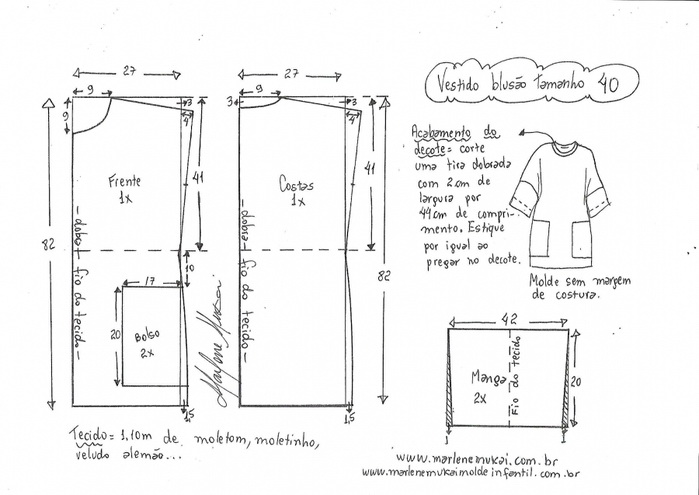 Vestido blusão tamanho 40
27
9
9
3
4
Frente
1x
41
82
- dobra - fio do tecido -
10
17
20
Bolso
2x
1,5
27
3
3
4
Costas
1x
41
82
- dobra - fio do tecido -
1,5
Marlene Mukai
Acabamento do
decote= corte
uma tira dobrada
com 2cm de
largura por
44cm de compri-
mento. Estique
por igual ao
pregar no decote.
Molde sem margem
de costura.
42
Manga
2x
Fio do tecido
20
1
1
Tecido= 1,10m de moletom, moletinho,
veludo alemão...
www.marlenemukai.com.br
www.marlenemukaimoldeinfantil.com.br